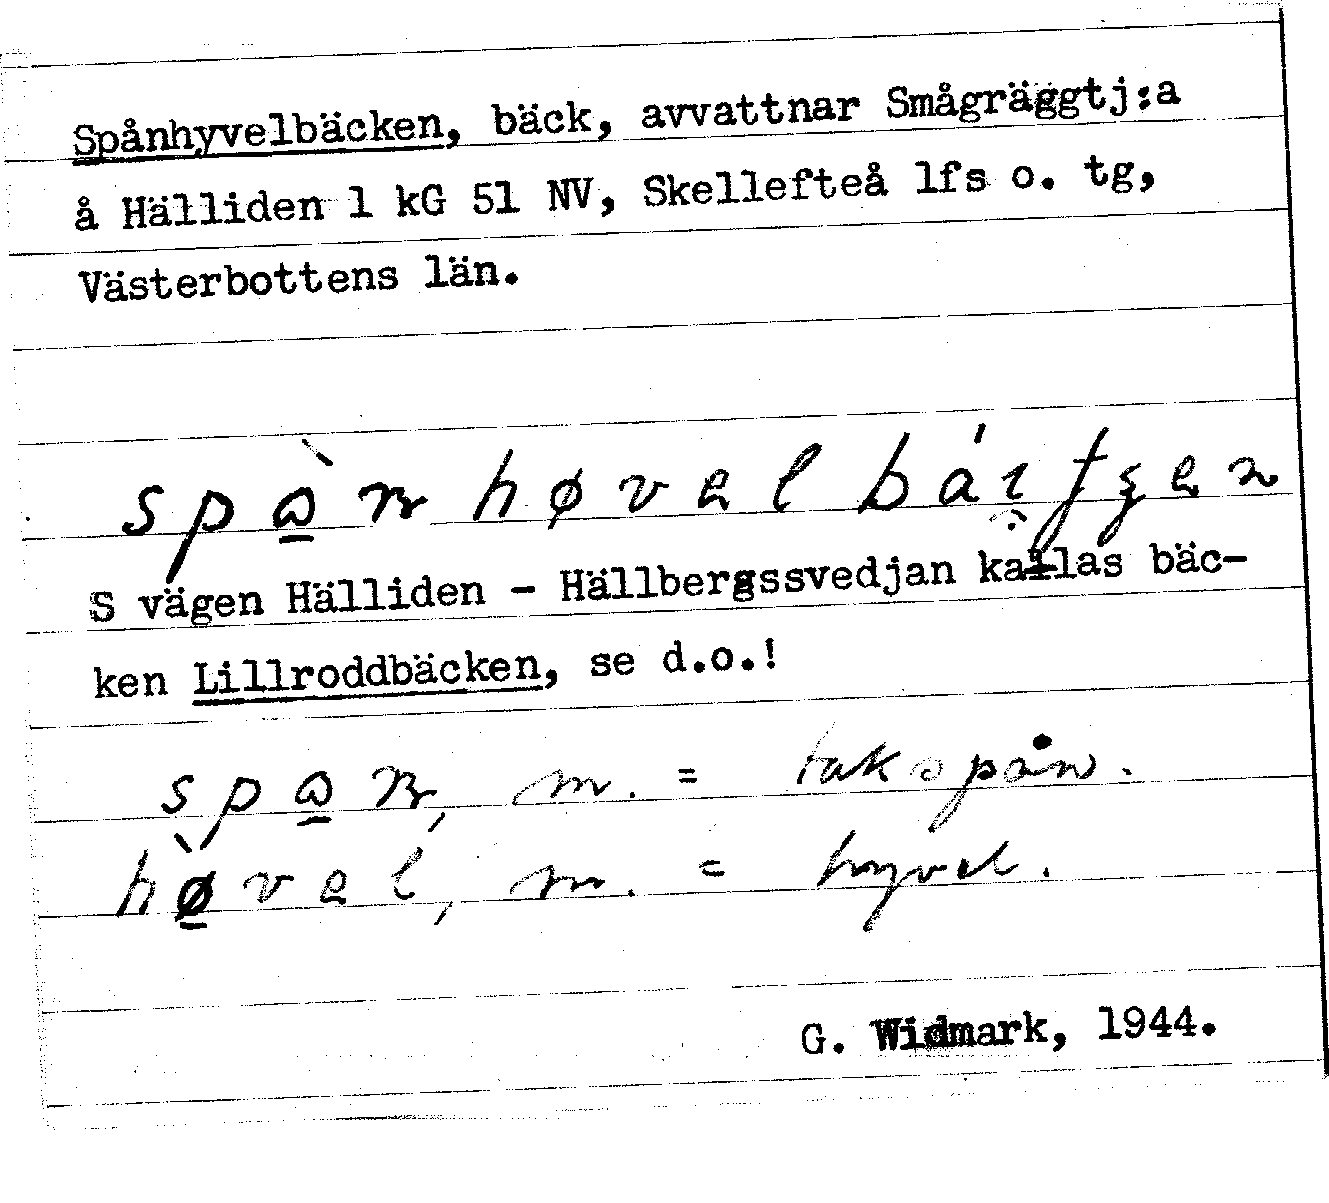 Spånhyvelbäcken, bäck, avvattnar Smågräggtj:a
å Hälliden 1 kG 51 NV, Skellefteå lfs o. tg,
Västerbottens län.
S vägen Hälliden - Hällbergssvedjan kallas bäc-
ken Lillroddbäcken, se d.o.!
m. = takspån.
m. = hyvel.
G. Widmark, 1944.